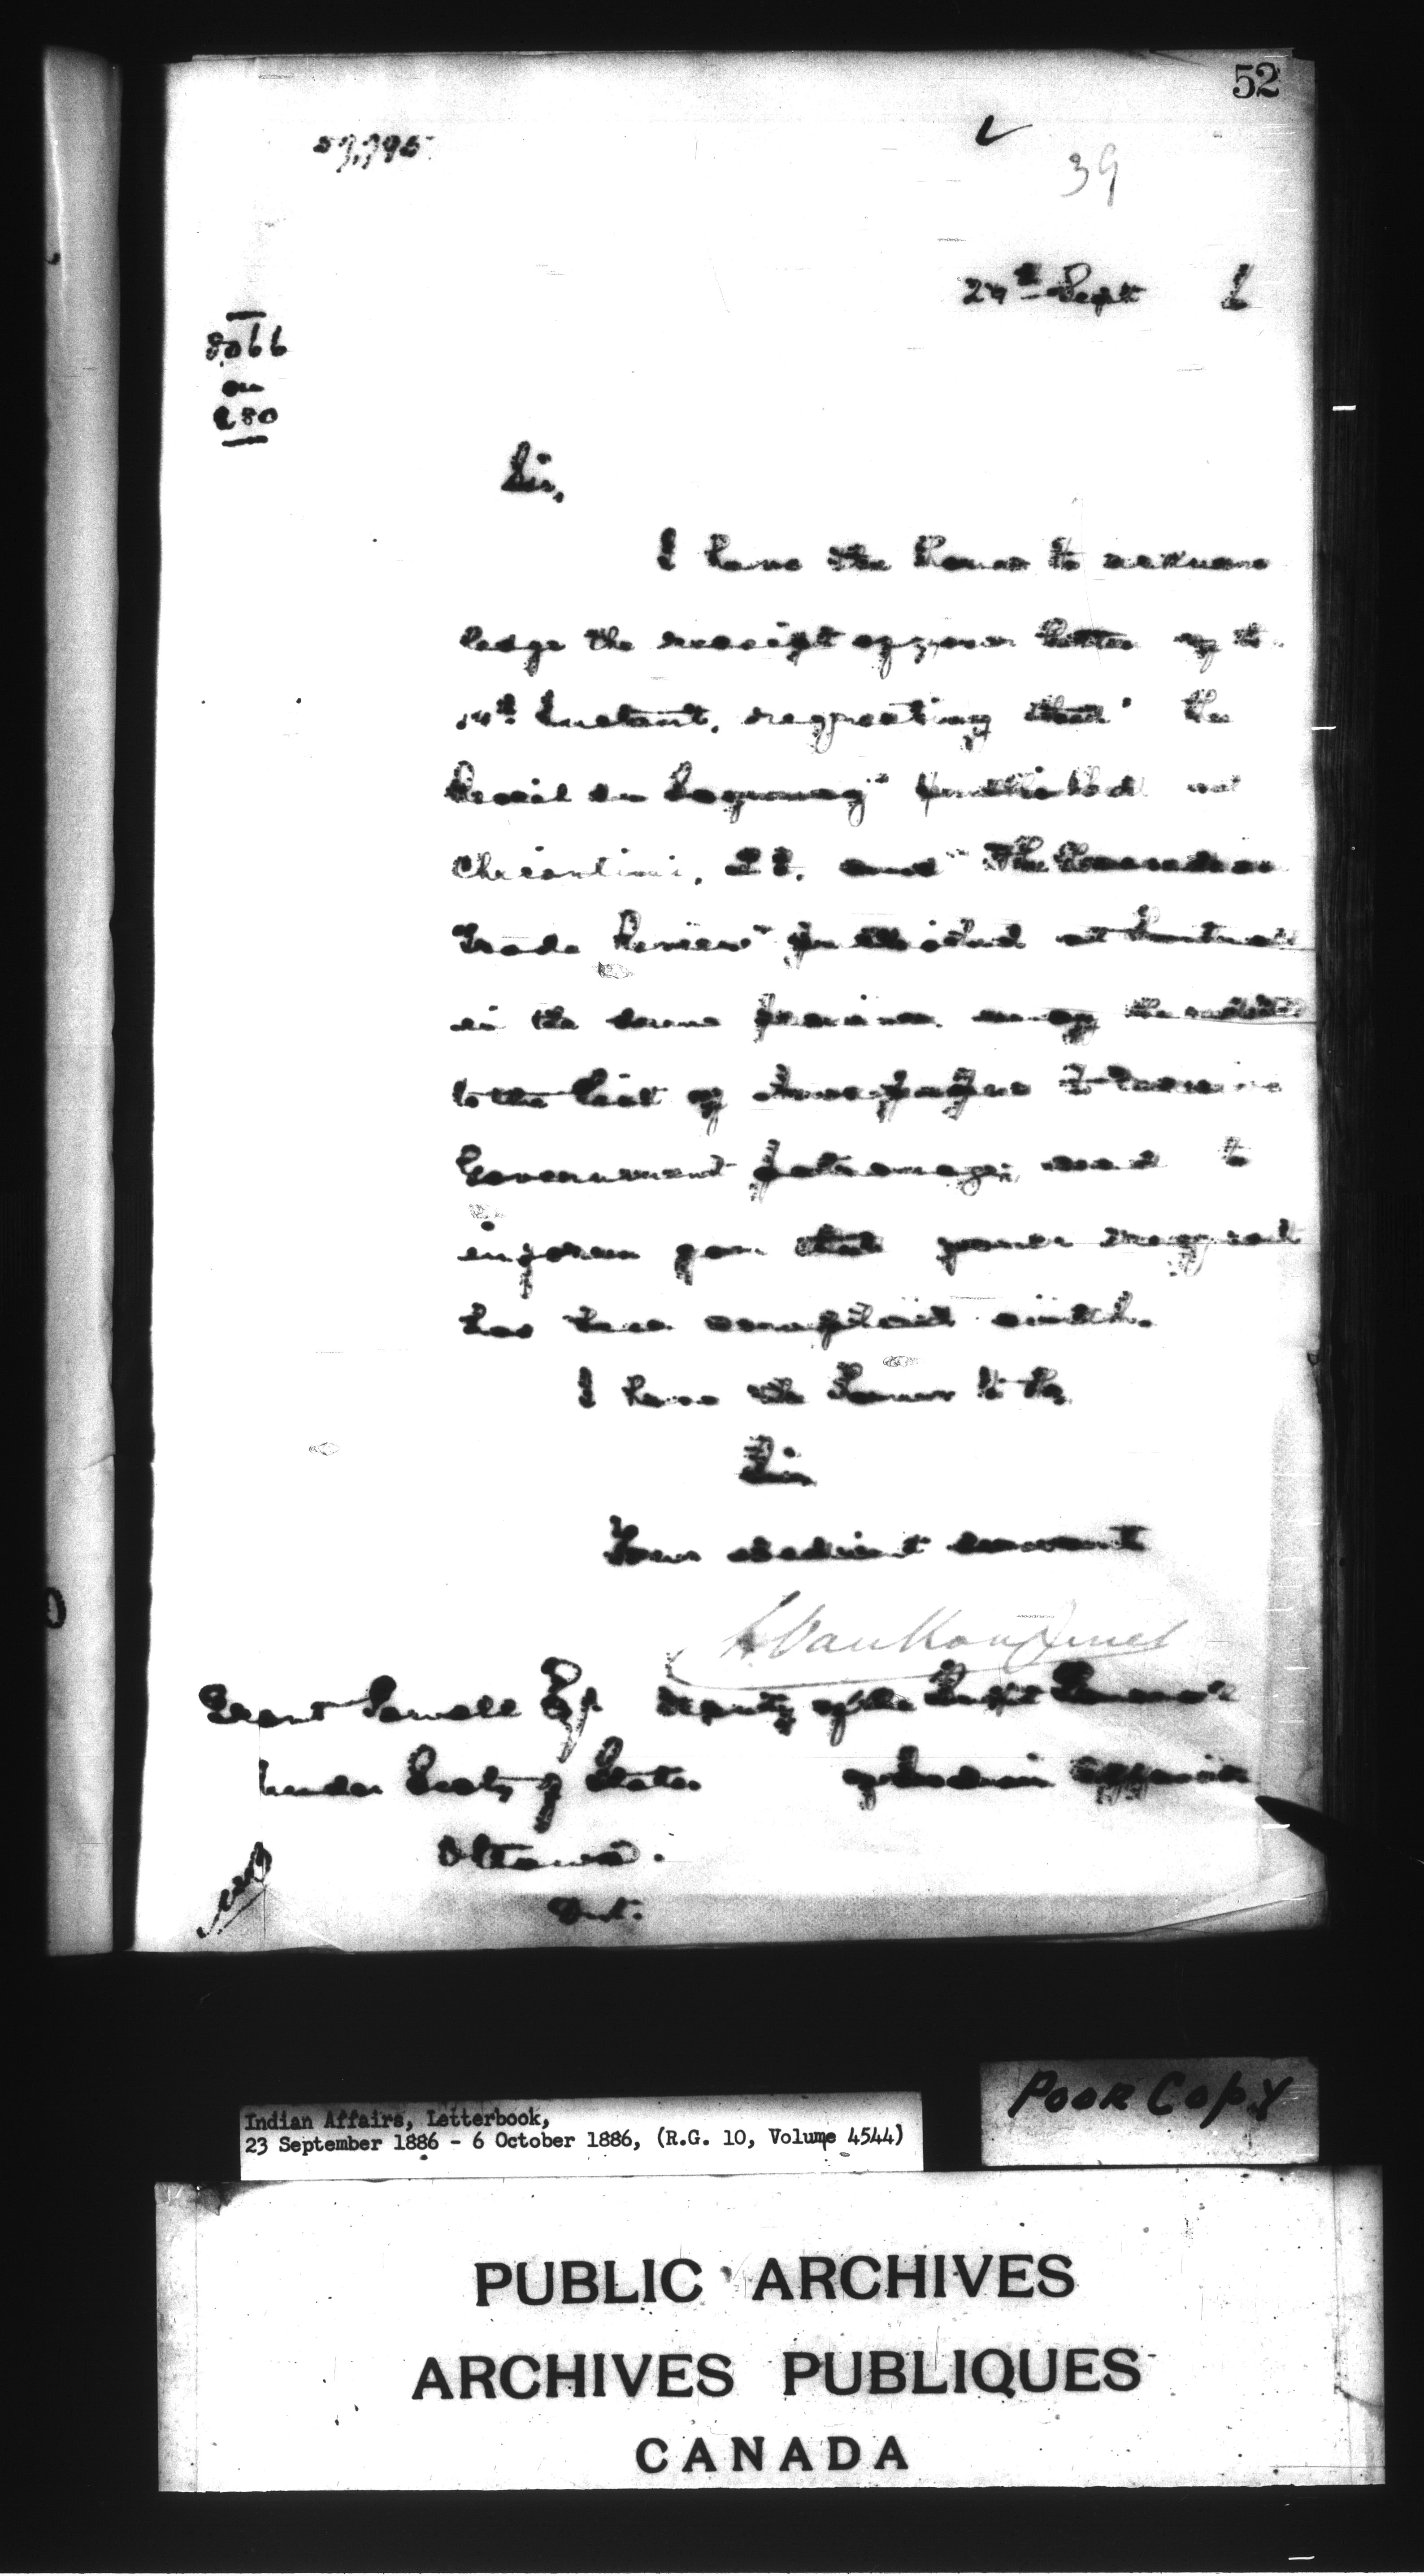 52
39
24th Sept 6
8066
on
280
Sir,
I have the honor to acknow
ledge the receipt of your letter of the
14th Instant, requesting that " the
published at
Chicoutimi, and "The Canadian
Trade Review" published at Montreal
in the same province may be added
to the list of Newspapers to receive
Government patronage, and to
inform you that your request
has been complied with.
I have the honor to be,
Sir
Your obedient servant
L. VanKoughnet
Grant Powell Esq Deputy of the Supt General
Under Secty of State of Indian Affairs
Ottawa.
Ont.
Indian Affairs, Letterbook,
23 September 1886 - 6 October 1886, (R.G. 10, Volume 4544)
Poor Copy
PUBLIC ARCHIVES
ARCHIVES PUBLIQUES
CANADA